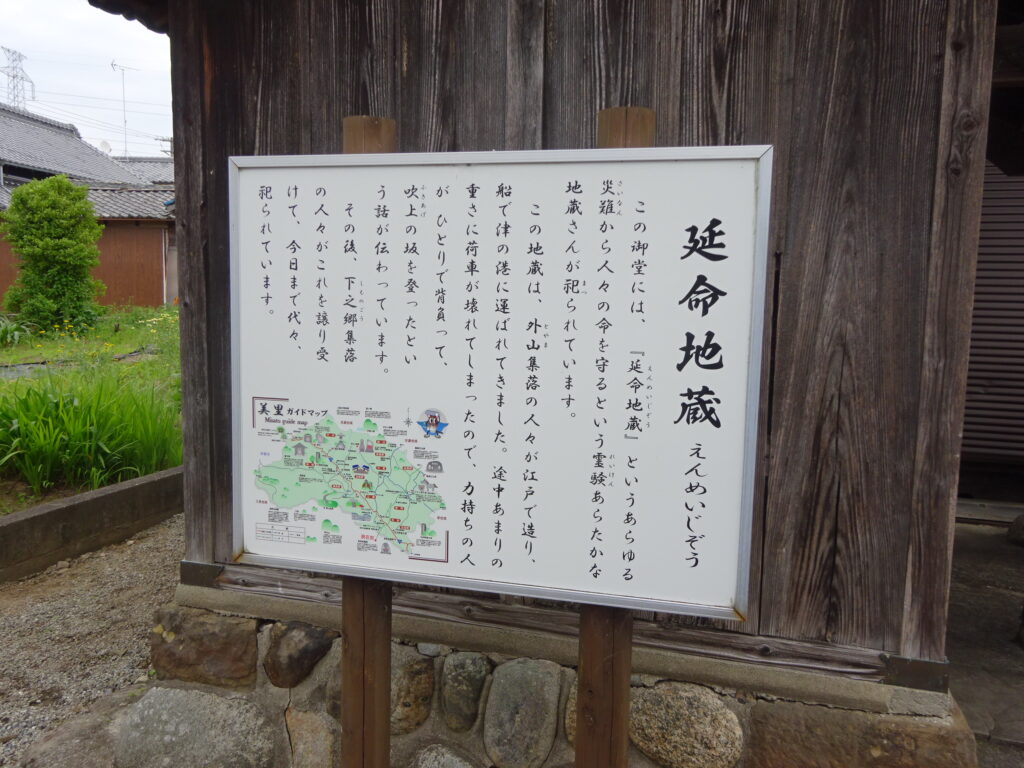 延命地蔵 えんめいじぞう
この御堂には、『延命地蔵』というあらゆる
災難から人々の命を守るという霊験あらたかな
地蔵さんが祀られています。
この地蔵は、外山集落の人々が江戸で造り、
船で津の港に運ばれてきました。途中あまりの
重さに荷車が壊れてしまったので、力持ちの人
が ひとりで背負って、
吹上の坂を登ったとい
う話が伝わっています。
その後、下之郷集落
の人々がこれを譲り受
けて、今日まで代々、
祀られています。
美里ガイドマップ
Misato guide map